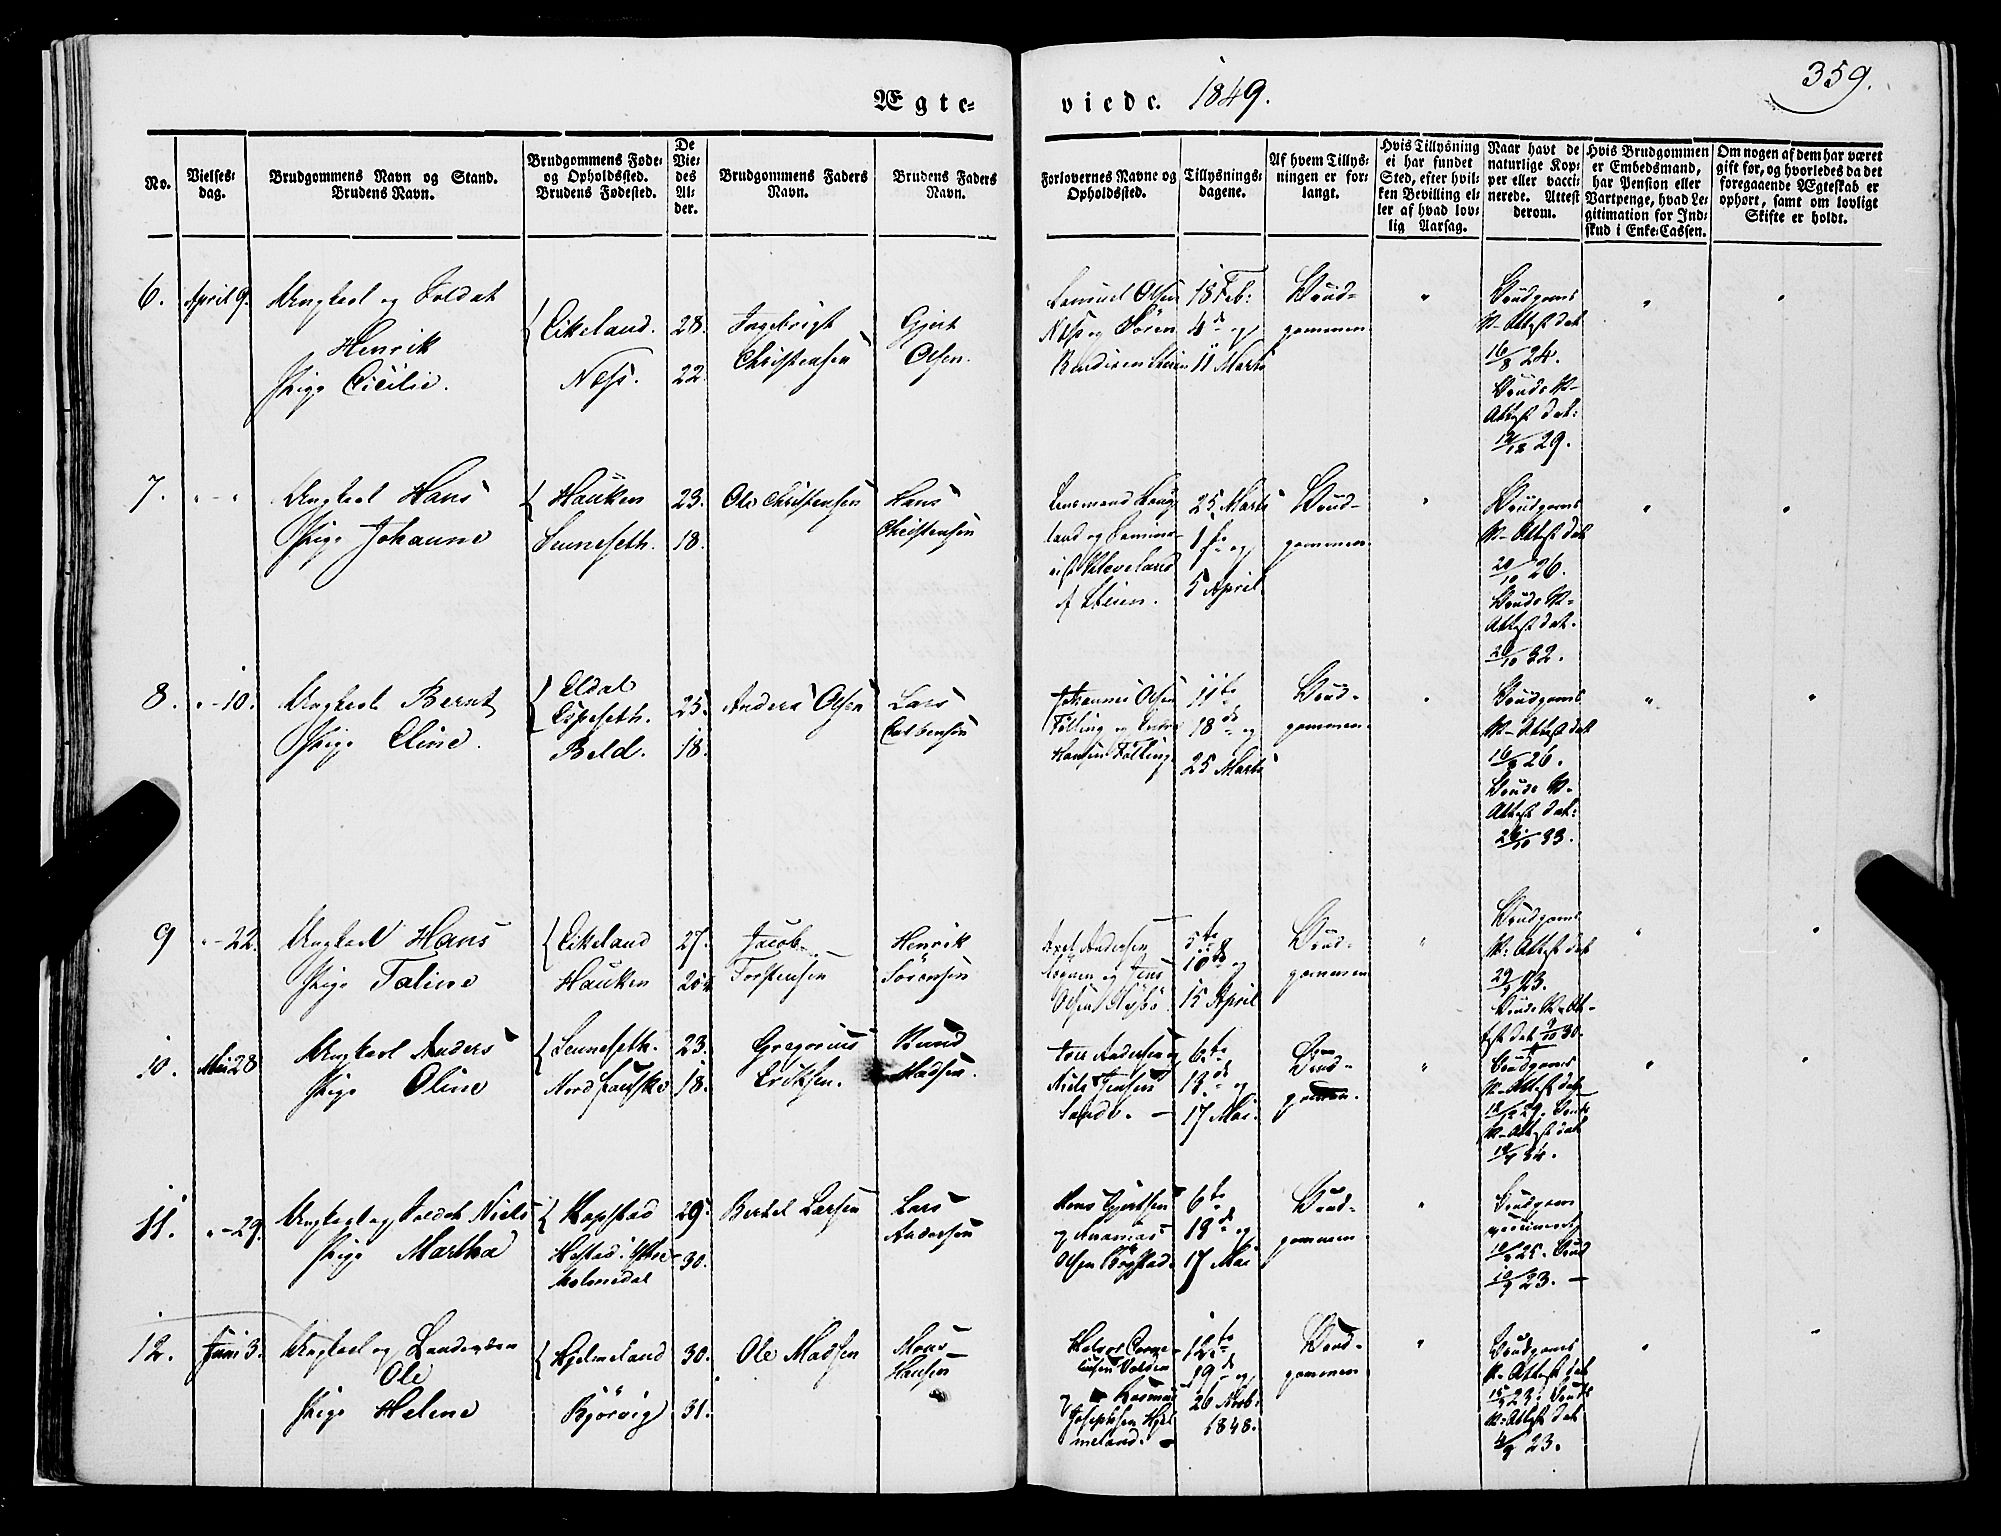 359.
Ægte-viede. 1849.
No.
Vielses-dag.
Brudgommens Navn og Stand.
Brudens Navn.
Brudgommens Føde-
og Opholdssted.
Brudens Fødested.
De
Vie-
des
Al-
der.
Brudgommens Faders
Navn.
Brudens Faders
Navn.
Forlovernes Navne og
Opholdssted.
Tillysnings-
dagene.
Af hvem Tillys-
ningen er for-
langt.
Hvis Tillysning
ei har fundet
Sted, efter hvil-
ken Bevilling el-
ler af hvad lov-
lig Aarsag.
Naar havt de
naturlige Kop-
per eller vacci-
nerede. Attest
derom.
Hvis Brudgommen
er Embedsmand,
har Pension eller
Vartpenge, hvad Le-
gitimation for Ind-
skud i Enke-Cassen.
Om nogen af dem har været
gift før, og hvorledes da det
foregaaende Ægteskab er
ophørt, samt om lovligt
Skifte er holdt.
6. April 9. Ungkarl og Soldat
Henrik
Pige Cicilie.
Eikeland. 28.
Næss. 22.
Ingebrigt
Christensen
Gjert
Olsen.
Samuel Olsen
Næss og Sören
18 Feb:
4de og
11 Marts
Brud-
gommen
"
Brudgoms
V-Attest dat
16/8 24.
Bruds V-
Attest dat:
29.
"
"
7. " - " Ungkarl Hans
Pige Johanne
Hauken 23.
Senneseth. 18.
Ole Christensen
Hans
Christensen
Lensmand Houg-
land og
25 Marts
1ste og
5 April
Brud-
gommen
"
Brudgoms
V-Attest dat
26.
Bruds V-
Attest dat.
32.
"
"
8. " - 10. Ungkarl Bernt
Pige Eline.
Eldal
Espeseth. 25.
Beld. 18.
Anders Olsen
Lars
Johannes Olsen
Tölling og
Hansen Tölling
11te
18de og
25 Marts
Brud-
gommen
"
Brudgoms
V-Attest dat
26.
Bruds V-
Attest dat:
33.
"
"
9 " - 22. Ungkarl Hans
Pige Taline
Eikeland 27.
Hauken
Jacob
Torstensen
Henrik
Sörensen
Axel Andersen
og Jens
Olsen
5te
10de og
15 April
Brud-
gommen
"
Brudgoms
V-Attest dat
23.
Bruds V-At-
test dat 30.
"
"
10. Mai 28 Ungkarl Anders
Pige Oline
Senneseth. 23.
18.
Gregorius
Eriksen.
Knud
Madsen.
Andersen
Niels Jensen
Sande. -
6te
13de og
17 Mai.
Brud-
gommen.
"
Brudgoms
V-Attest dat
29. Bruds
V-Attest dat
"
"
11. " - 29. Ungkarl og Soldat Niels
Pige Martha
Kopstad 29.
Hestad i Ytre-
Holmedal 30.
Bertel Larsen
Lars
Andersen
Hans Gjertsen
og Ananias
Olsen
6te
13de og
17 Mai
Brud-
gommen
"
Brudgom
25. Brud
23. -
12. Juni 3. Ungkarl og
Ole
Pige Helene
Hjelmeland 30.
Bjørvig 31.
Ole Madsen
Mons
Hansen
og Rasmus
Josephsen Hjel-
meland. -
12te
19de og
26 Novb:
1848.
Brud-
gommen
"
Brudgoms
V-Attest dat
23. Bruds
V-Attest dat
4/9 23.
"
"